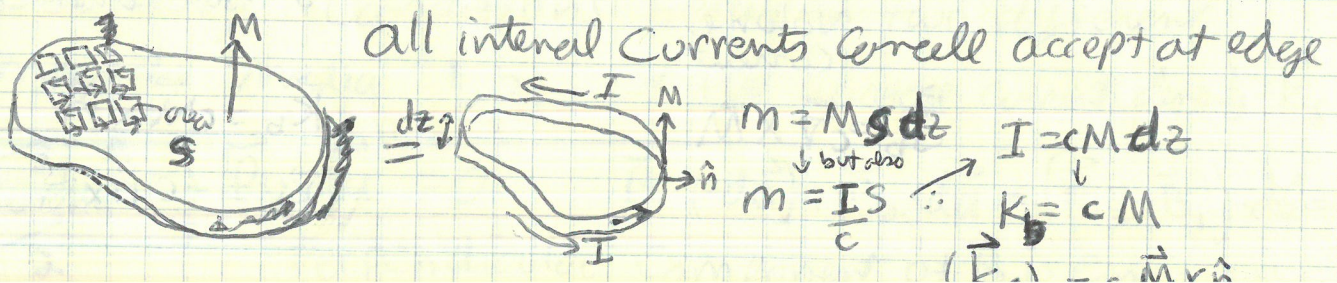 all internal Currents Cancell accept at edge
M
I
area
S
dz
=
M
n̂
I
m = MSdz
↓ but also
m = IS/c
∴
I = cMdz
↓
K_b = cM